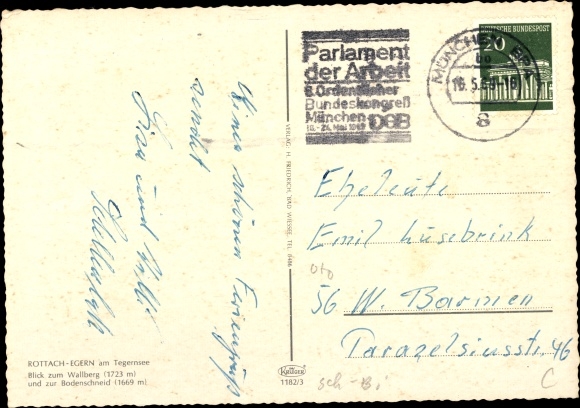 Parlament
der Arbeit
8. Ordentlicher
Bundeskongreß
München
18.-24. Mai 1969 DGB
MÜNCHEN BP
16.5.69-18
8
DEUTSCHE BUNDESPOST
20
schönen Feriengruß
sendet
und
VERLAG: H. FRIEDRICH, BAD WIESSEE, TEL.
Eheleute
Emil Lüsebrink
56 W. Barmen
Parazelsiusstr. 46
oto
sch-B.
C
ROTTACH-EGERN am Tegernsee
Blick zum Wallberg (1723 m)
und zur Bodenschneid (1669 m)
KRÜGER
1182/3